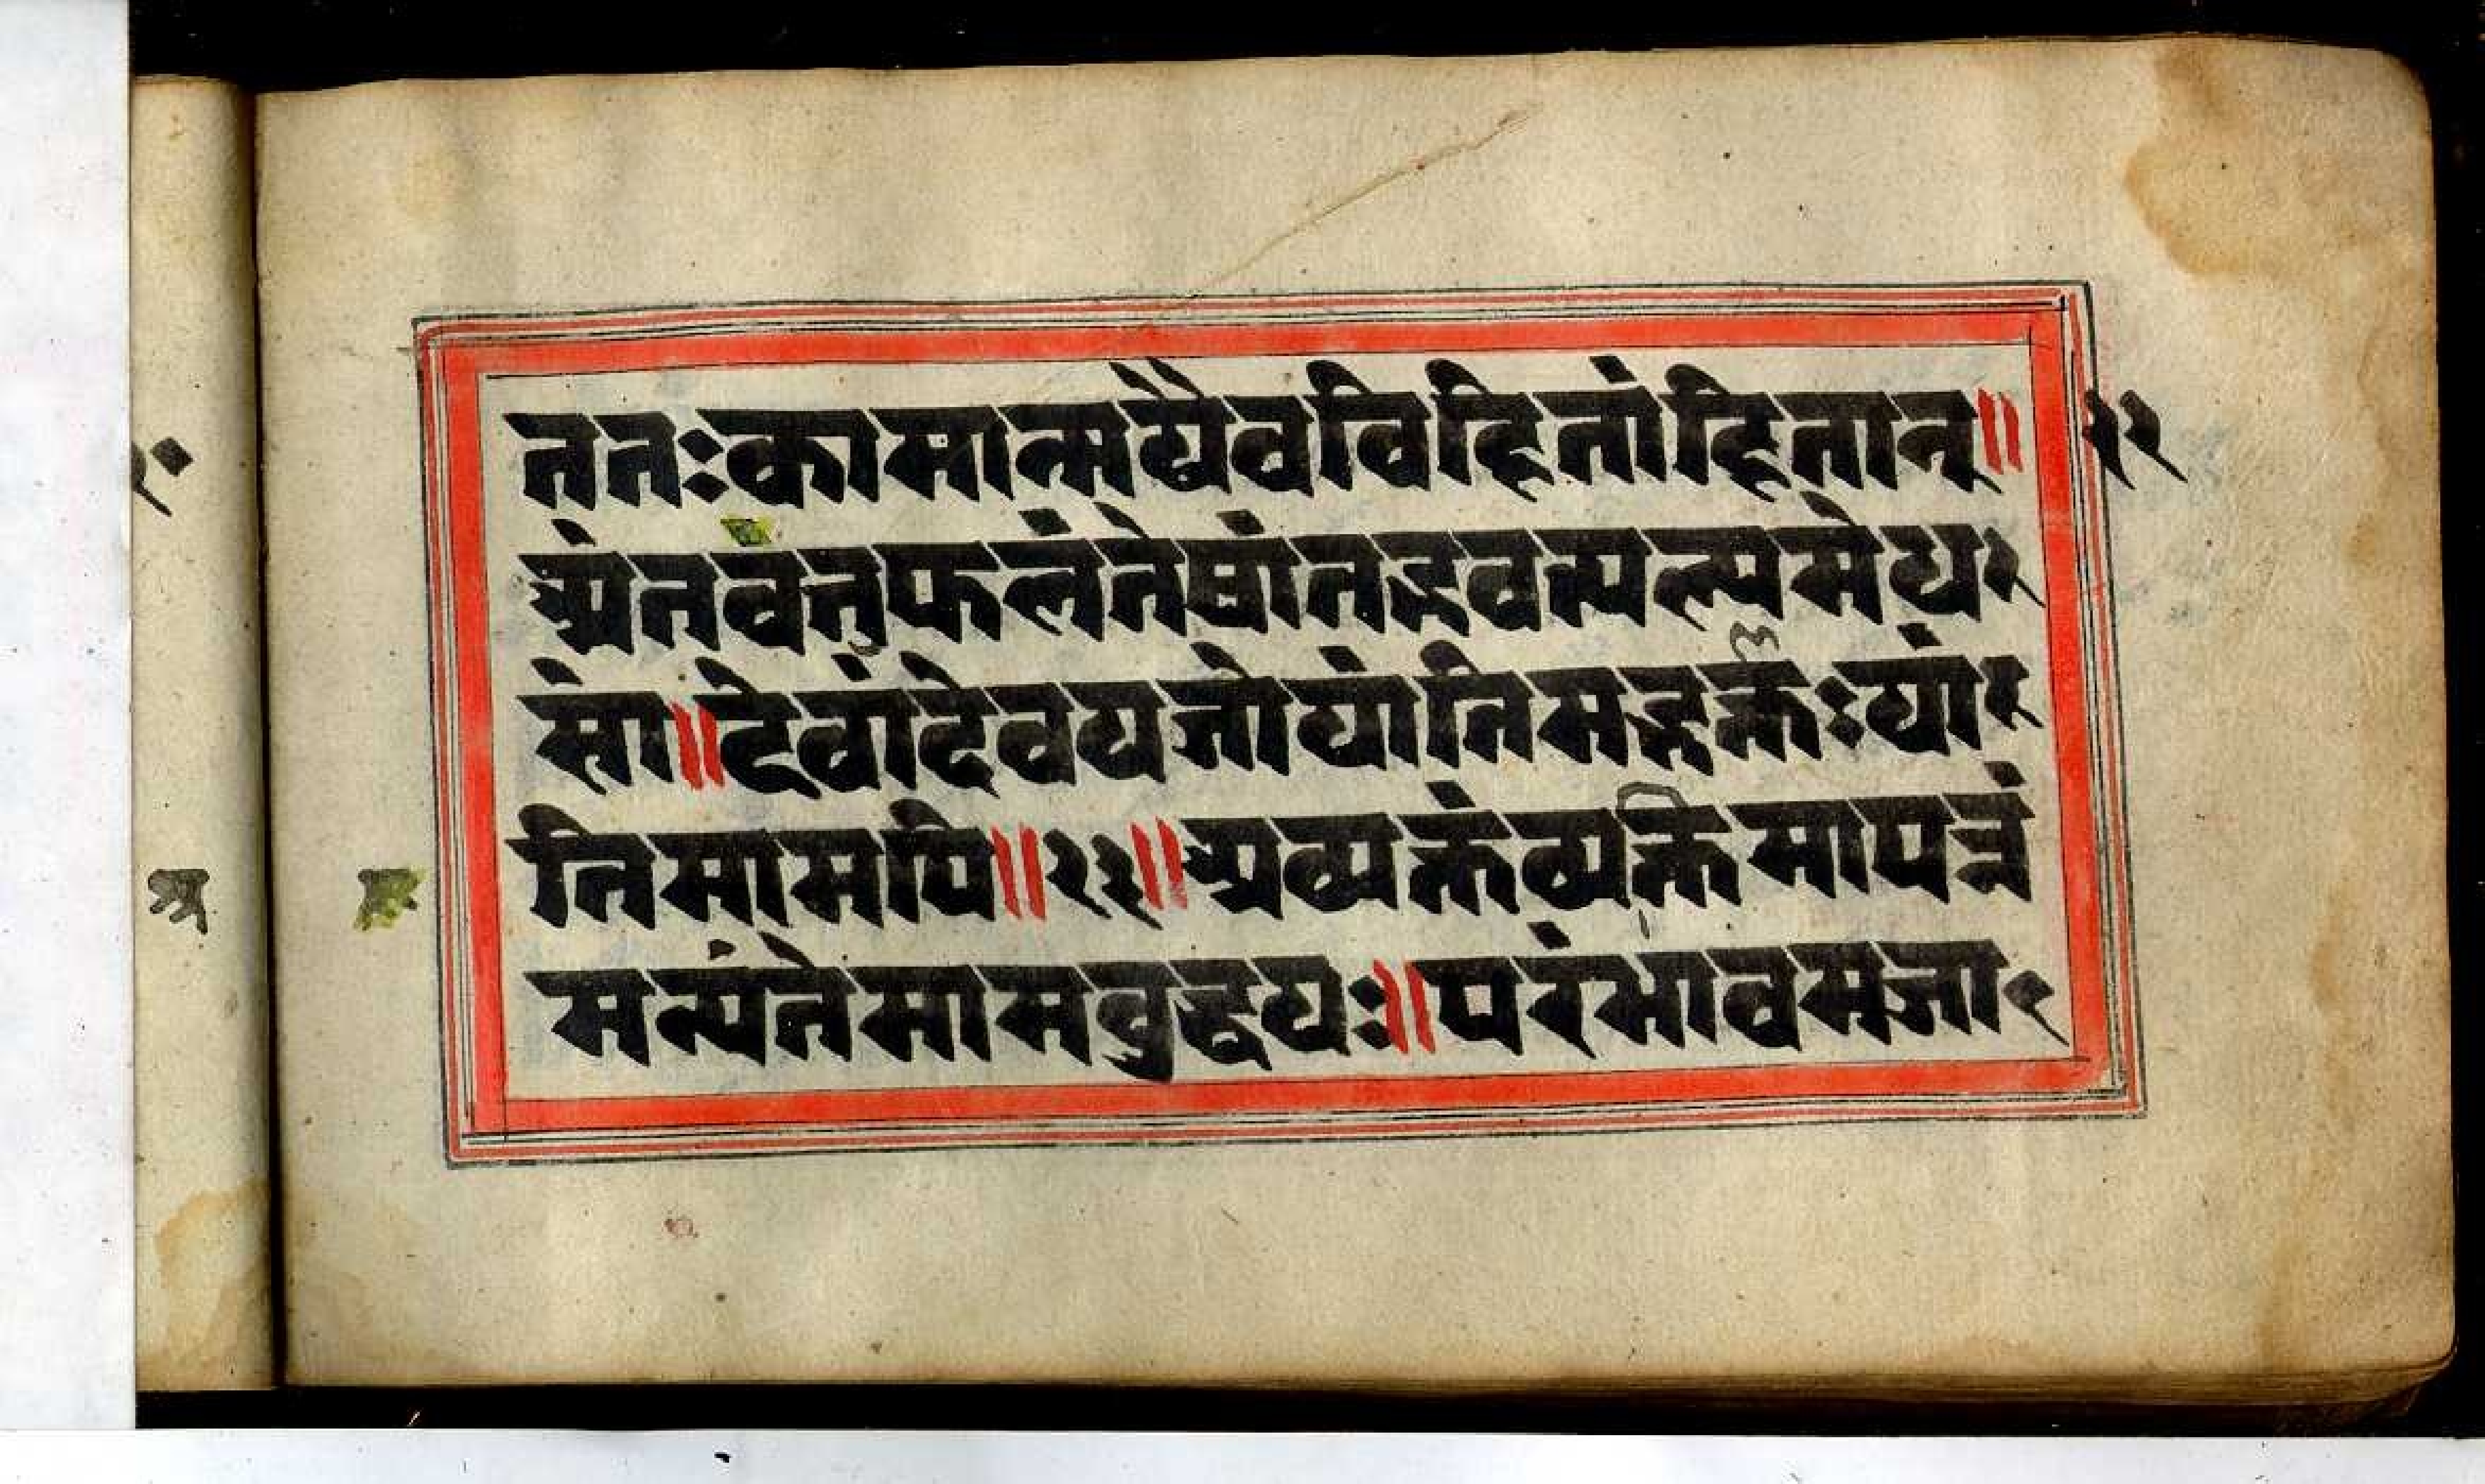 ततःकामान्मयैवविहितांहितान्॥ २२
अंतवत्तुफलंतेषांतद्भवत्यल्पमेध
सां॥देवांदेवयजोयांतिमद्भक्तःयां
तिमामपि॥२३॥अव्यक्तंव्यक्तिमापन्नं
मन्यंतेमामबुद्धयः॥परंभावमजा